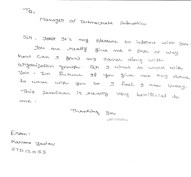 To,
Manager of Technocrats Industries
Sir. It's my pleasure to interact with you.
You are really give me a new way
how can I grow my career along with
organization growth. So I want to work with
You. In future if you give me any chance
to work with you so I feel I am lucky
This Seminar is really very beneficial to
me.
Thanking You
From:
Yadav